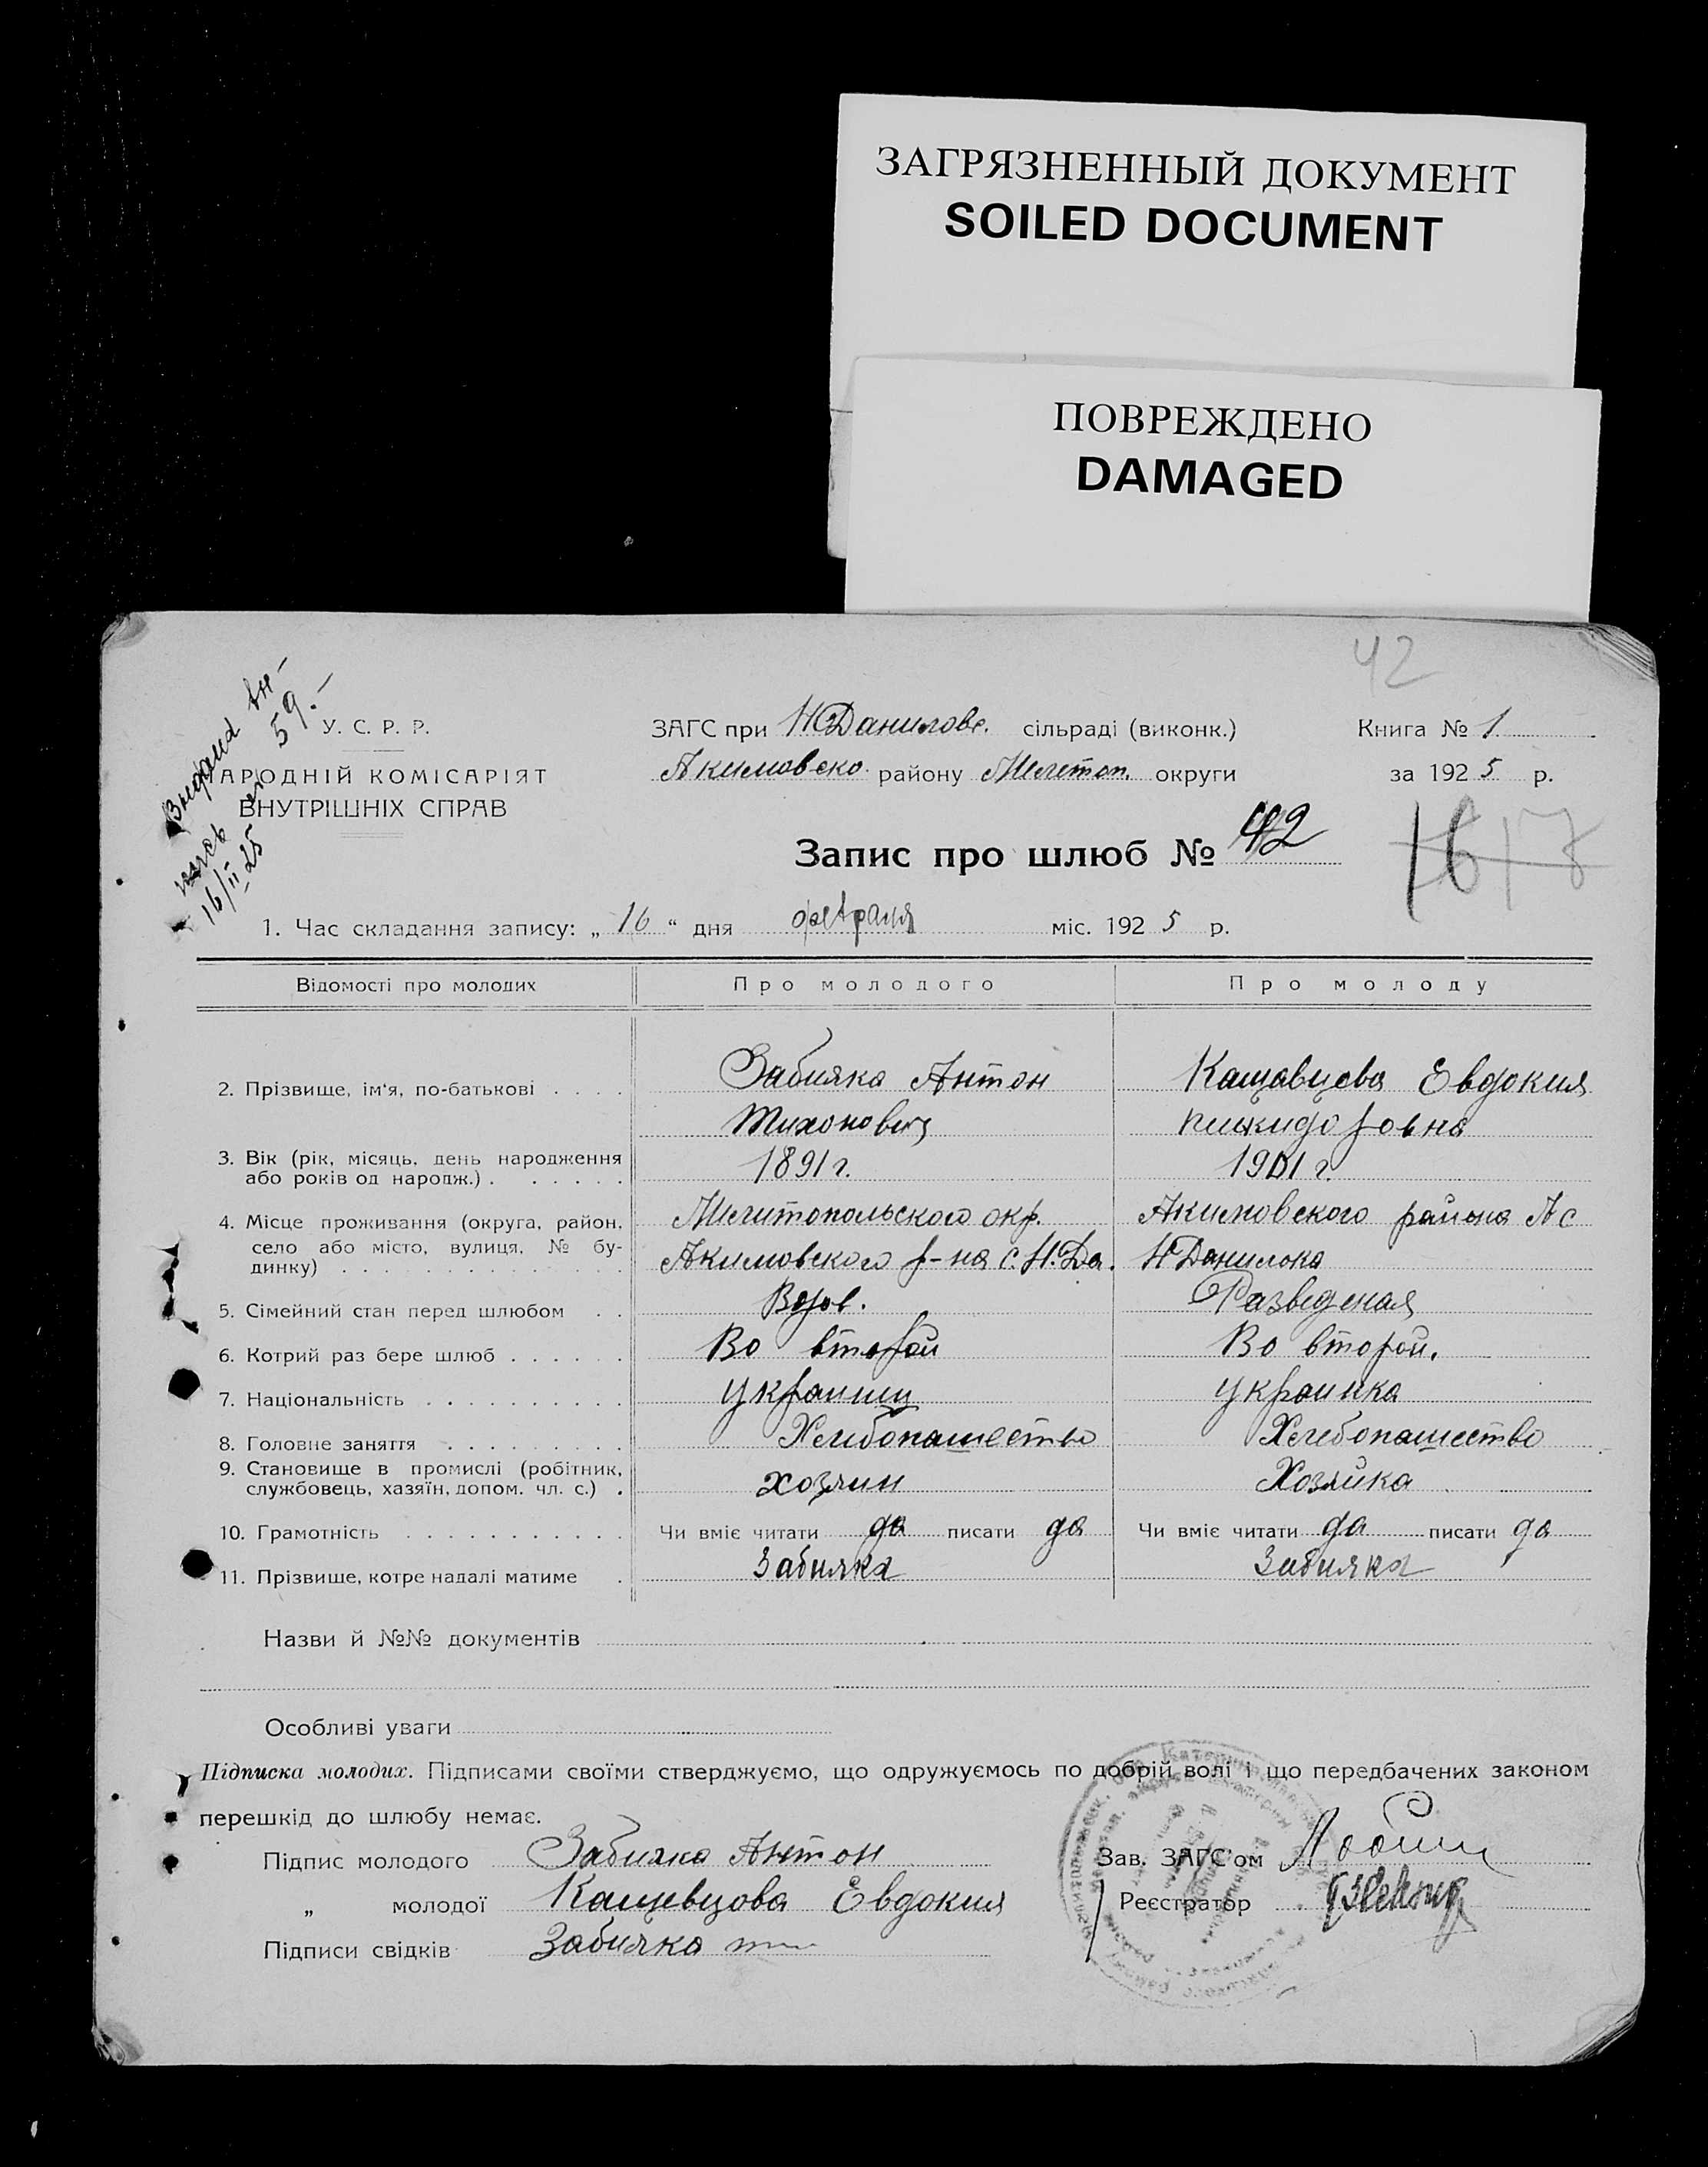 ЗАГРЯЗНЕННЫЙ ДОКУМЕНТ
SOILED DOCUMENT
ПОВРЕЖДЕНО
DAMAGED
42
У. С. Р. Р.
НАРОДНІЙ КОМІСАРІЯТ
ВНУТРІШНІХ СПРАВ
16/II 25
59.
ЗАГС при Н Данилов. сільраді (виконк.)
Акимовско району Мелетоп. округи
Книга № 1
за 1925 р.
Запис про шлюб № 42
1. Час складання запису: „ 16 “ дня февраля міс. 1925 р.
Відомості про молодих Про молодого Про молоду
2. Прізвище, ім'я, по-батькові Забияка Антон Кащавцева Евдокия
Тихонович
3. Вік (рік, місяць, день народження або років од народж.) 1891 г. 1901 г.
4. Місце проживання (округа, район, Мелитопольского окр. Акимовского района
село або місто, вулиця, № бу- Акимовского р-на с. Н. Да. Н Данилока
динку)
5. Сімейний стан перед шлюбом Вдов. Разведеная
6. Котрий раз бере шлюб Во второй Во второй.
7. Національність украинец украинка
8. Головне заняття Хлебопашество Хлебопашество
9. Становище в промислі (робітник, службовець, хазяїн, допом. чл. с.) хозяин Хозяйка
10. Грамотність Чи вміє читати да писати да Чи вміє читати да писати да
11. Прізвище, котре надалі матиме Забияка Забияка
Назви й №№ документів
Особливі уваги
Підписка молодих. Підписами своїми стверджуємо, що одружуємось по добрій волі і що передбачених законом
перешкід до шлюбу немає.
Підпис молодого Забияка Антон Зав. ЗАГС'ом
„ молодої Кащевцова Евдокия Реєстратор
Підписи свідків Забияка